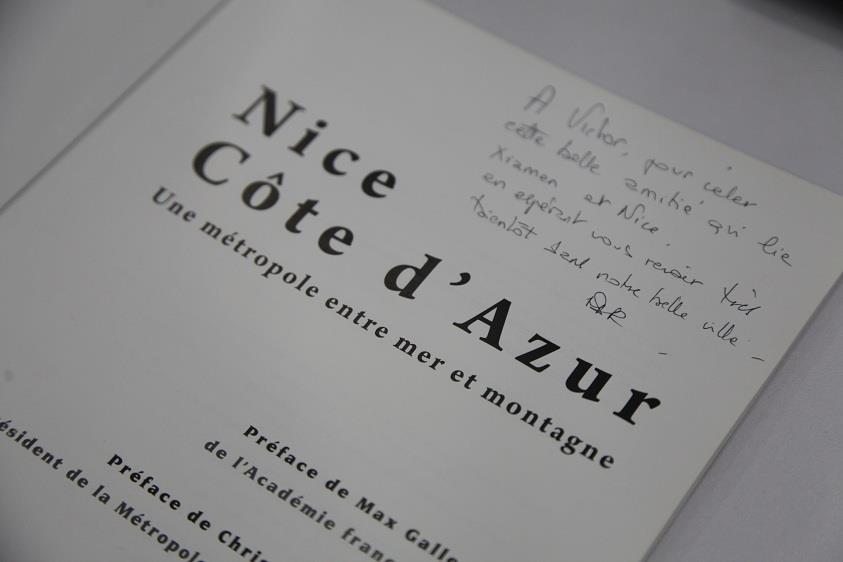 Nice
Côte d'Azur
Une métropole entre mer et montagne
Préface de Max Gallo
de l'Académie franç
Préface de Chris
ésident de la Métropole
A Victor, pour célér
cette belle amitié qui lie
Xiamen et Nice.
en espérant vous revoir très
bientôt dans notre belle ville -